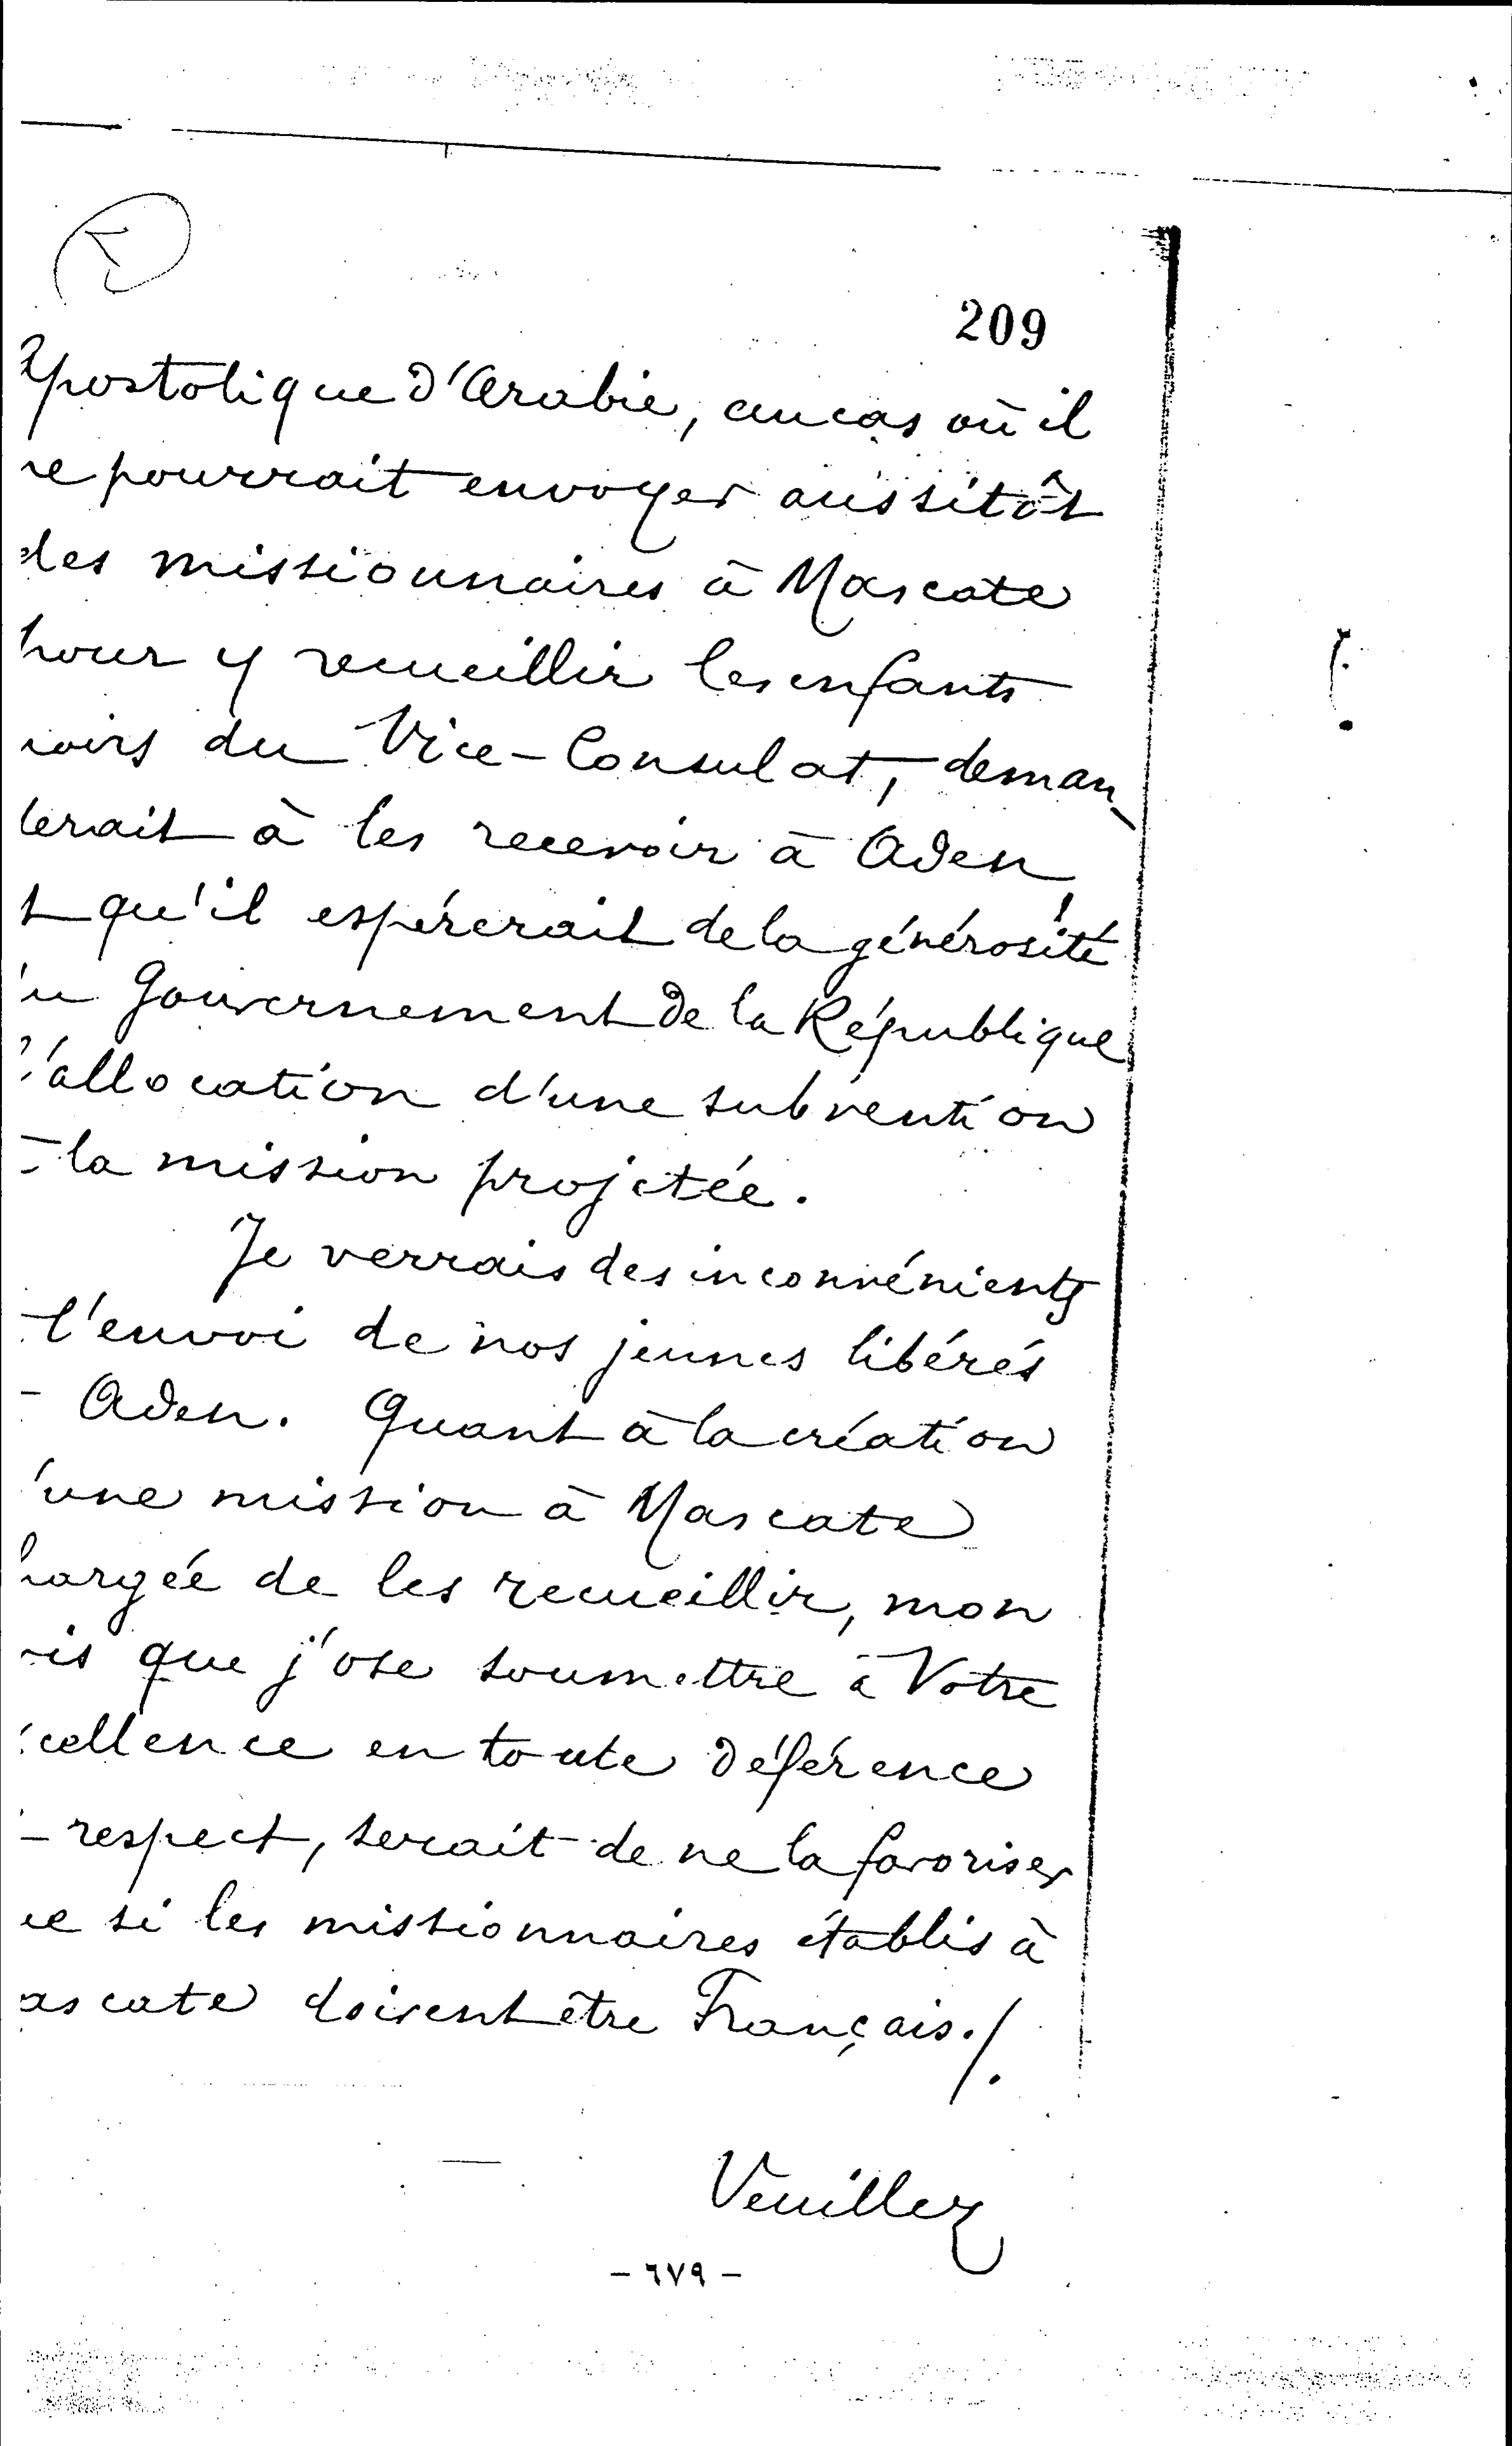 209
Apostolique d'Arabie, au cas où il
ne pourrait envoyer aussitôt
des missionnaires à Mascate
pour y recueillir les enfants
noirs du Vice-Consulat, deman
derait à les recevoir à Aden,
t qu'il espérerait de la générosité
du Gouvernement de la République
l'allocation d'une subvention
à la mission projetée.
Je verrais des inconvénients
l'envoi de nos jeunes libérés
à Aden. Quant à la création
'une mission à Mascate
hargée de les recueillir, mon
vis que j'ose soumettre à Votre
cellence en toute déférence
respect, serait de ne la favoriser
ue si les missionnaires établis à
ascate doivent être Français./.
Veuillez
- ٦٧٩ -